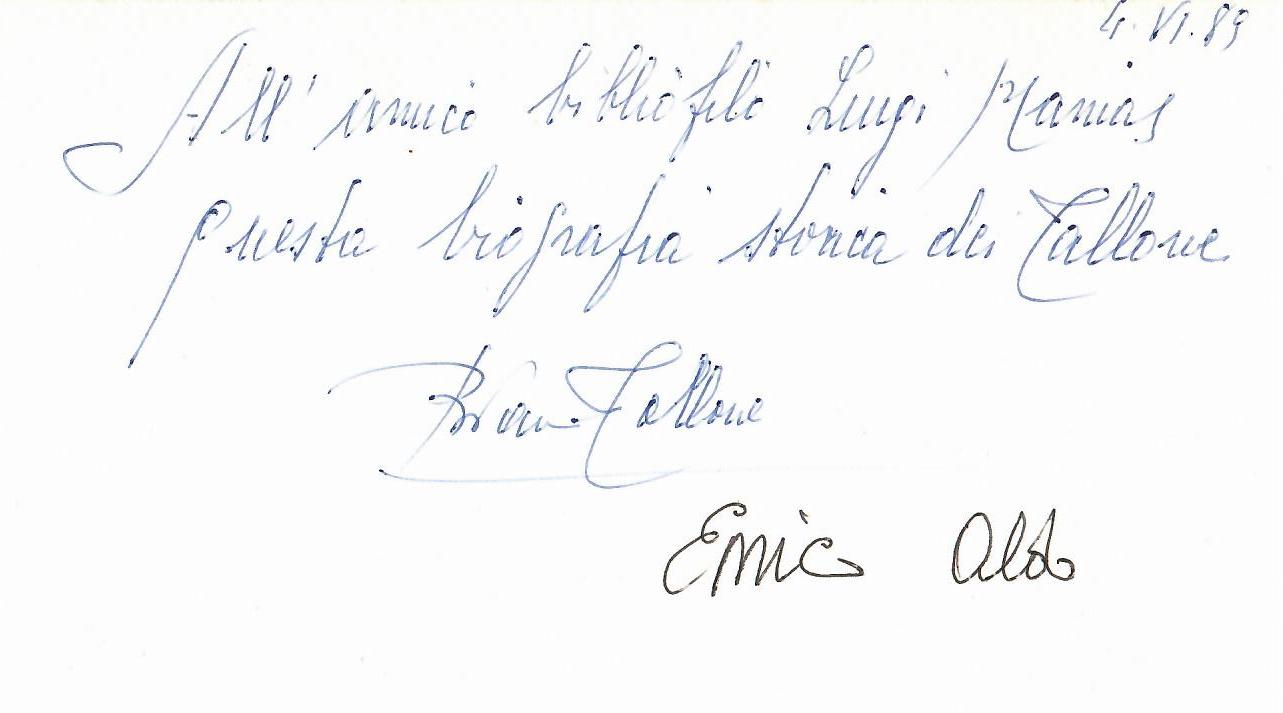 4. VI. 89
All' amico bibliofilo Luigi Manias
questa biografia storica dei Tallone
Bianca Tallone
Enrico Aldo